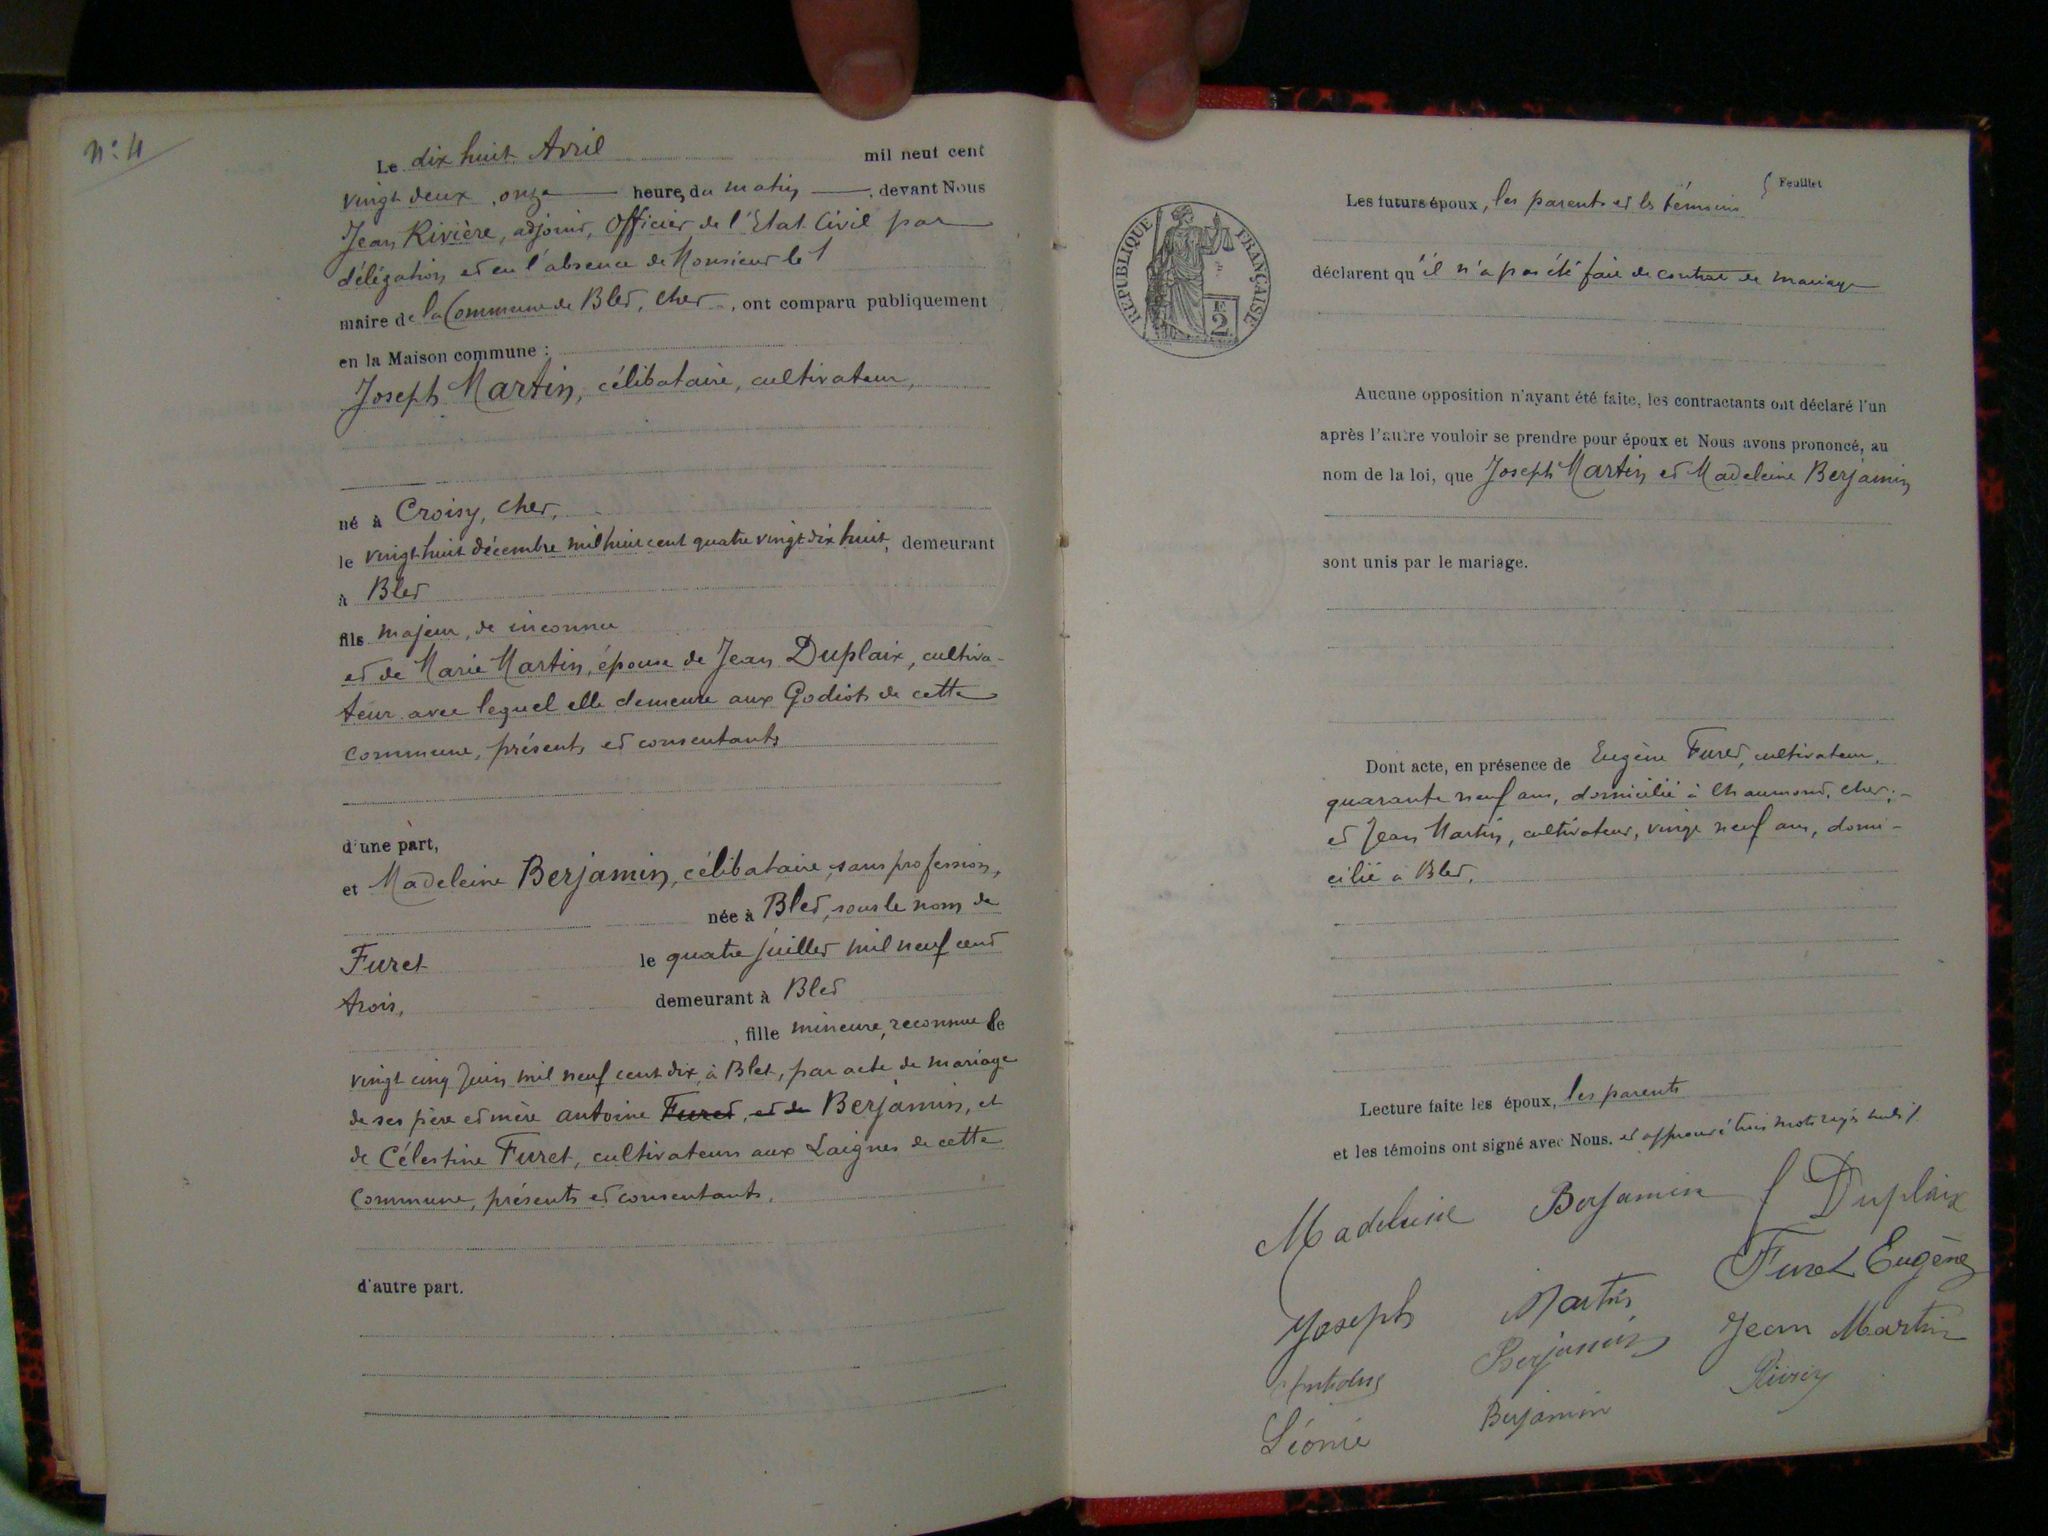 N° 4
Le dix huit Avril mil neuf cent
vingt deux, onze heures du matin, devant Nous
Jean Rivière, adjoint, Officier de l'Etat Civil par
délégation et en l'absence de Monsieur le
maire de la Commune de Blet, Cher, ont comparu publiquement
en la Maison commune :
Joseph Martin, célibataire, cultivateur,
né à Croisy, Cher,
le vingt huit décembre mil huit cent quatre vingt dix huit, demeurant
à Blet
fils majeur, de inconnu
et de Marie Martin, épouse de Jean Duplaix, cultiva-
teur avec lequel elle demeure aux Godiots de cette
commune, présents et consentants
d'une part,
et Madeleine Berjamin, célibataire, sans profession,
née à Blet, sous le nom de
Furet le quatre juillet mil neuf cent
trois, demeurant à Blet
, fille mineure, reconnue le
vingt cinq Juin mil neuf cent dix, à Blet, par acte de mariage
de ses père et mère antoine Furet, et de Berjamin, et
de Célestine Furet, cultivateurs aux Laignes de cette
Commune, présents et consentants.
d'autre part.
Feuillet
Les futurs époux, les parents et les témoins
RÉPUBLIQUE FRANÇAISE
2 F
déclarent qu'il n'a pas été fait de contrat de mariage
Aucune opposition n'ayant été faite, les contractants ont déclaré l'un
après l'autre vouloir se prendre pour époux et Nous avons prononcé, au
nom de la loi, que Joseph Martin et Madeleine Berjamin
sont unis par le mariage.
Dont acte, en présence de Eugène Furet, cultivateur,
quarante neuf ans, domicilié à Chaumont, Cher,
et Jean Martin, cultivateur, vingt neuf ans, domi-
cilié à Blet.
Lecture faite les époux, les parents
et les témoins ont signé avec Nous. et approuvé trois mots rayés nuls
Madeleine Berjamin J Duplaix
Furet Eugène
Joseph Martin
Jean Martin
Antoine Berjamin
Rivière
Léonie Berjamin